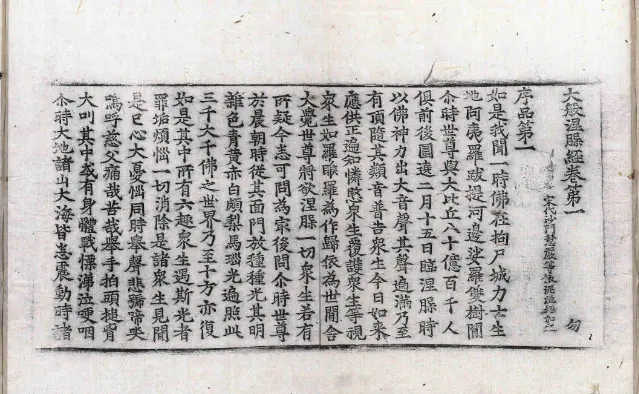 大般涅槃經卷第一
宋代沙門慧嚴等依泥洹經加之
勿
序品第一
如是我聞一時佛在拘尸城力士生
地阿夷羅跋提河邊娑羅雙樹間
尒時世尊與大比丘八十億百千人
俱前後圍遶二月十五日臨涅槃時
以佛神力出大音聲其聲遍滿乃至
有頂隨其類音普告衆生今日如來
應供正遍知憐愍衆生覆護衆生等視
衆生如羅睺羅為作歸依為世間舍
大覺世尊將欲涅槃一切衆生若有
所疑今悉可問為㝡後問尒時世尊
於晨朝時從其面門放種種光其明
雜色青黃赤白頗梨馬瑙光遍照此
三千大千佛之世界乃至十方亦復
如是其中所有六趣衆生遇斯光者
罪垢煩惱一切消除是諸衆生見聞
是已心大憂惱同時舉聲悲號啼哭
嗚呼慈父痛哉苦哉舉手拍頭搥胷
大叫其中或有身體戰慄涕泣哽咽
尒時大地諸山大海皆悉震動時諸